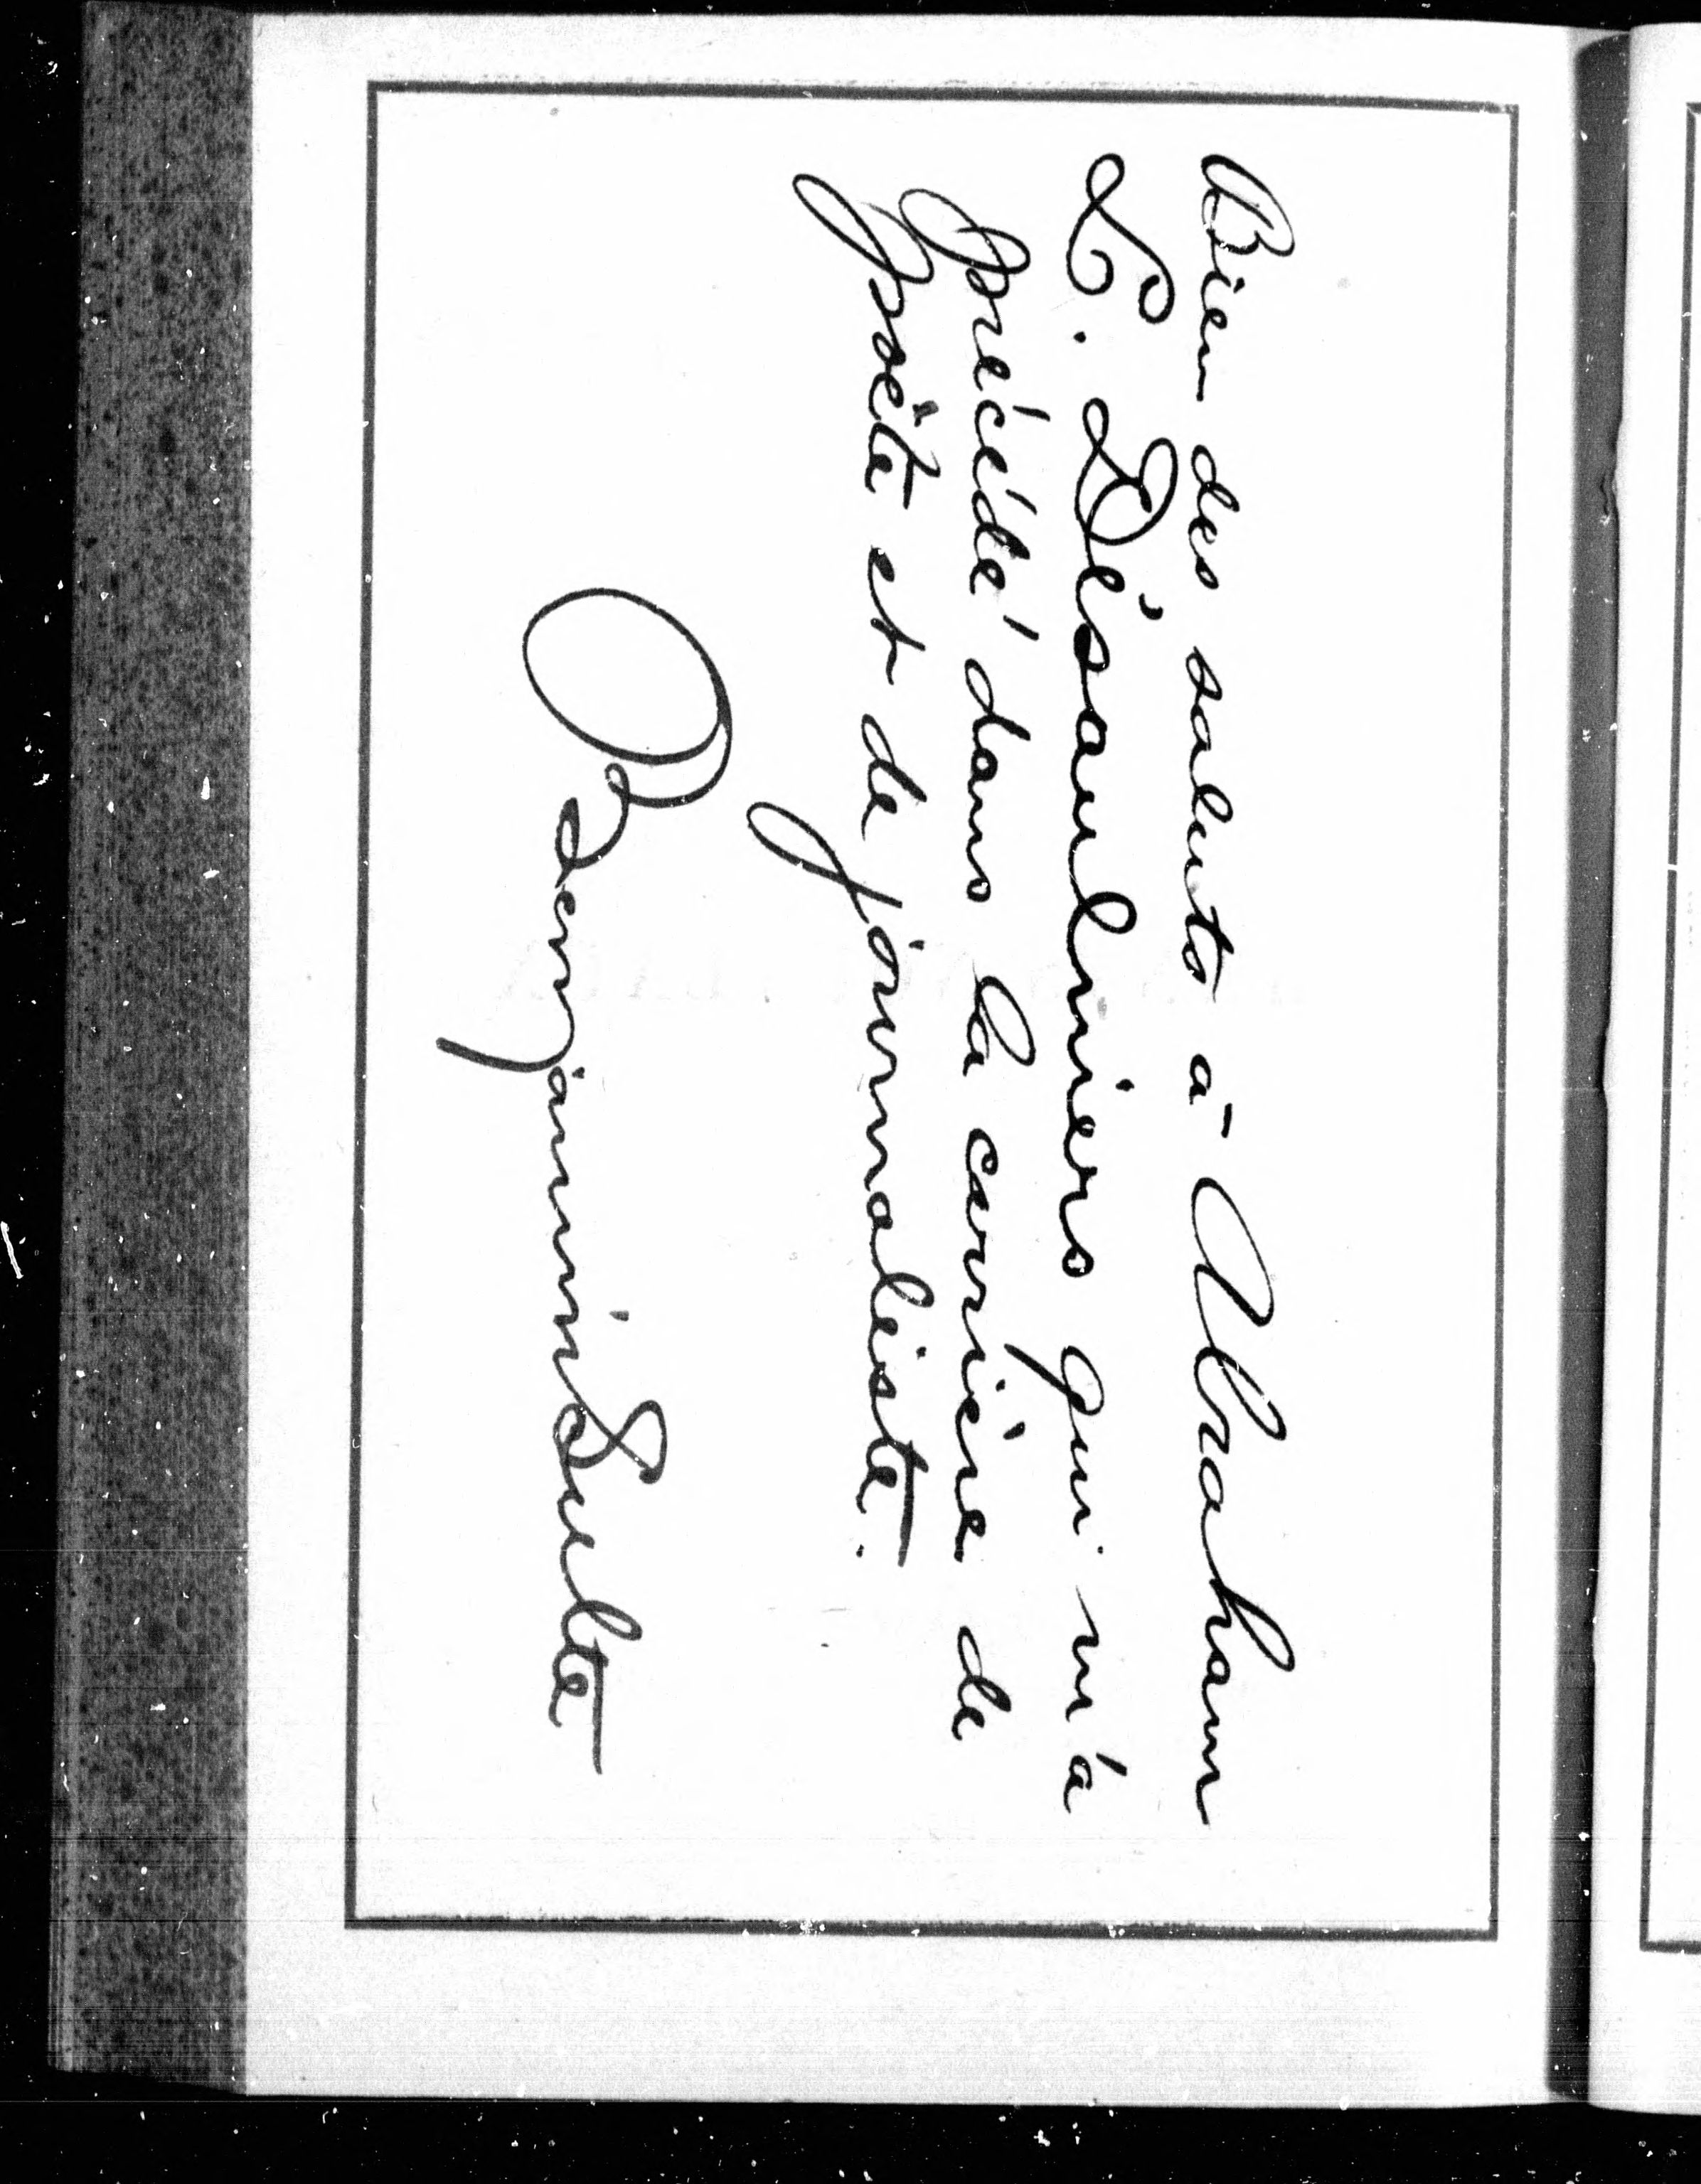 Bien des saluts à Abraham
L. Désaulniers qui m'a
précédé dans la carrière de
poète et de journaliste.
Benjamin Sulte